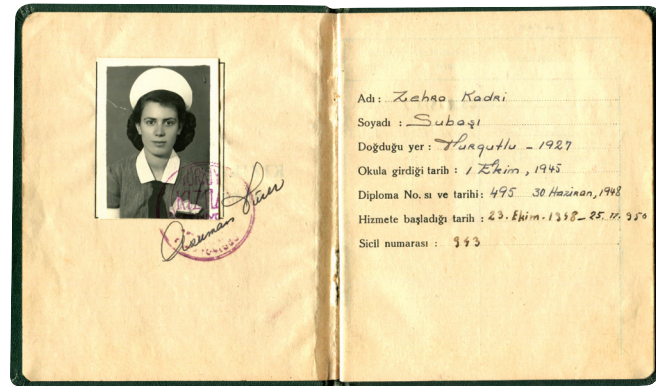 Adı : Zehra Kadri
Soyadı : Subaşı
Doğduğu yer : Turgutlu - 1927
Okula girdiği tarih : 1 Ekim, 1945
Diploma No. sı ve tarihi : 495 30 Haziran, 1948
Hizmete başladığı tarih : 23. Ekim. 1948 - 25. II. 950
Sicil numarası : 943